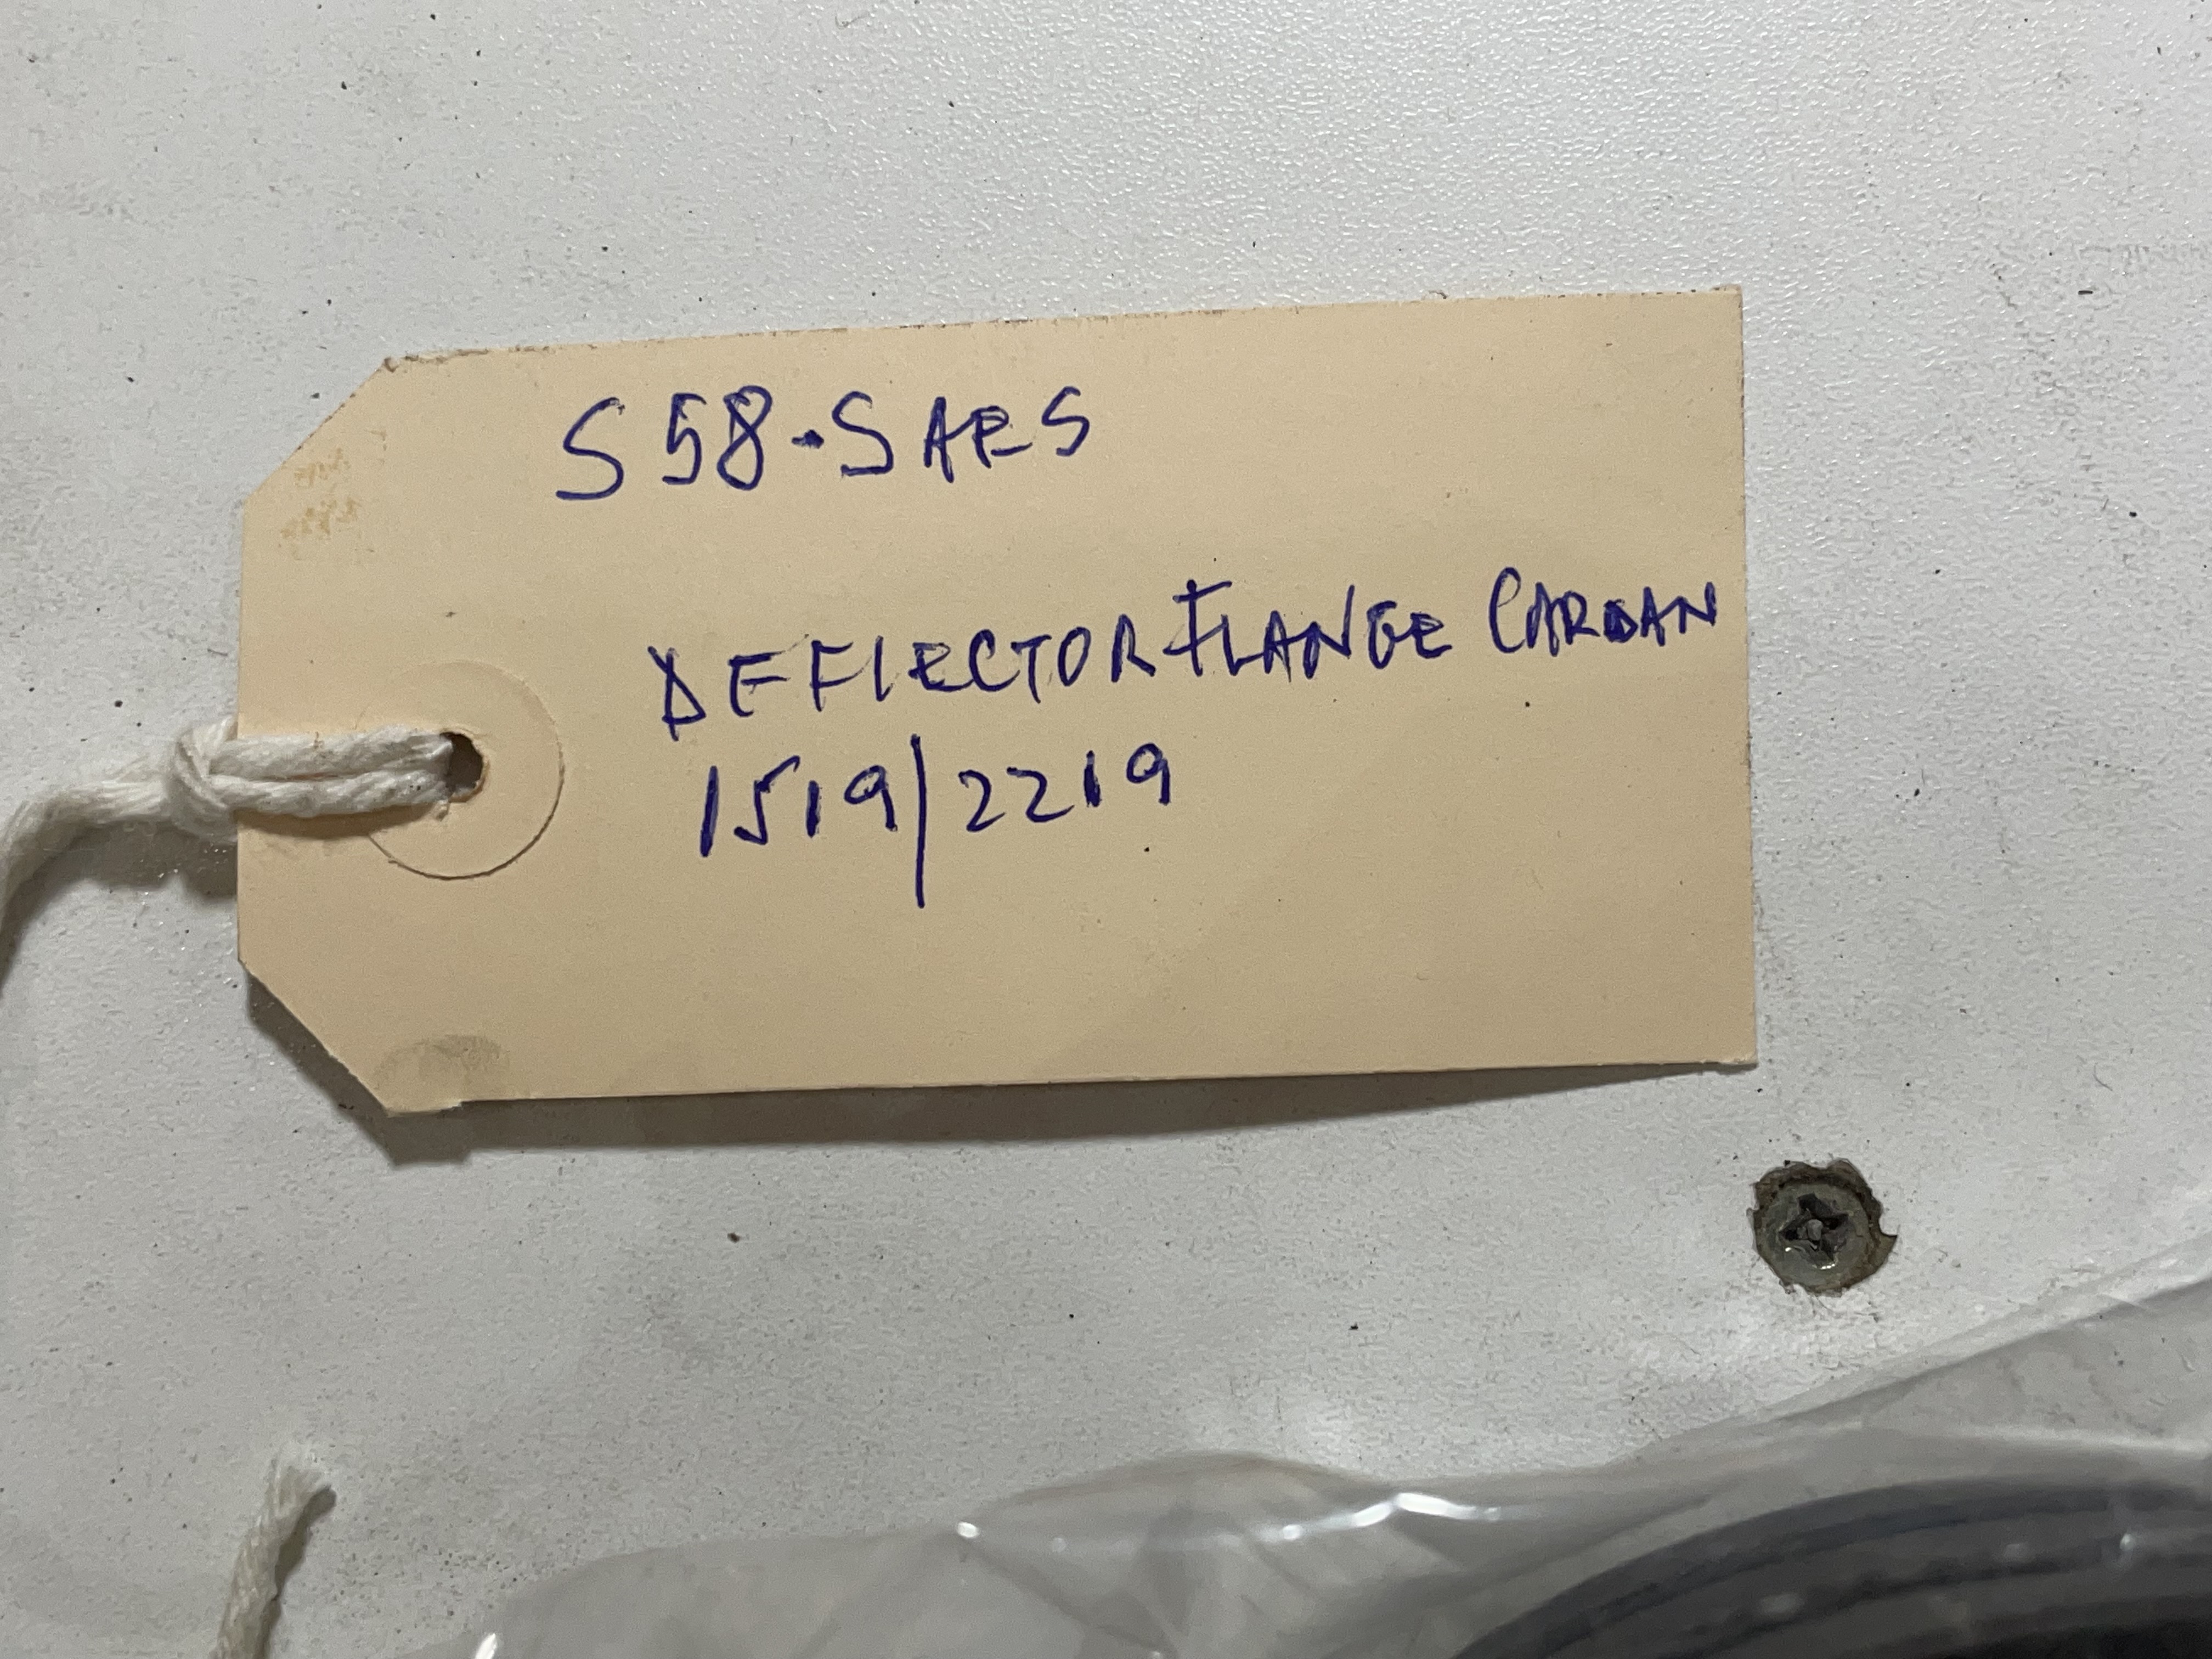 S 58.SARS
DEFLECTOR FLANGE CARDAN
1519/2219